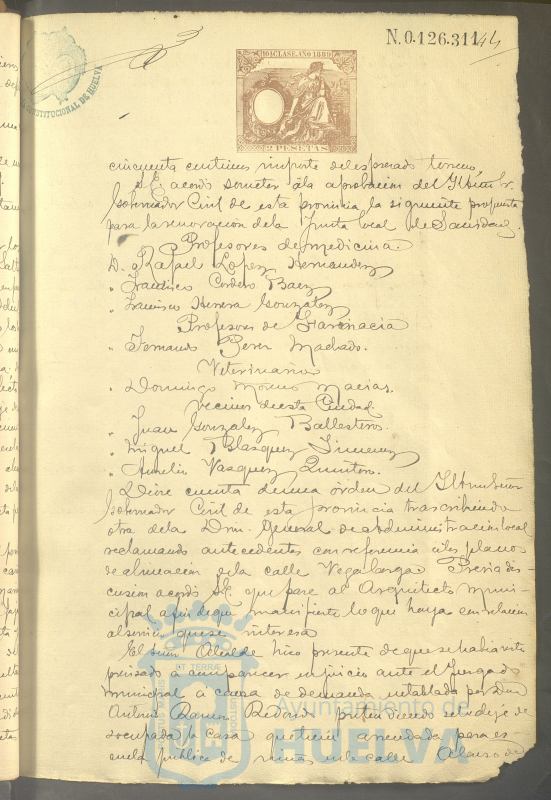 N.0.126.311 44
CONSTITUCIONAL DE HUELVA
10ª CLASE. AÑO 1889
2 PESETAS
cincuenta centimos importe del espresado terreno.
S.E. acordó someter á la aprobacion del Iltmo Sr.
Gobernador Civil de esta provincia la siguiente propuesta
para la renovacion de la Junta local de Sanidad.
Profesores de medicina.
D. Rafael Lopez Hernandez
" Francisco Cordero Baez
" Francisco Herrera Gonzalez
Profesores de Farmacia
" Fernando Perez Machado.
Veterinario
" Domingo Macias.
Vecinos de esta Ciudad
" Juan Gonzalez Ballesteros.
" Miguel Blazquez Jimenez
" Aurelio Vazquez Quintero.
Dióse cuenta de una órden del Iltmo Señor
Gobernador Civil de esta provincia trascribiendo
otra de la Dron. General de administracion local
reclamando antecedentes con referencia á los planos
de alineacion de la calle Vega larga. Previa dis-
cusion acordó S.E. que pase al Arquitecto muni-
cipal a fin de que manifieste lo que haya en relacion
al servicio que se interesa
El Señor Alcalde hizo presente de que se habia visto
precisado a comparecer en juicio ante el Juzgado
municipal á causa de demanda entablada por Don
Antonio Ramon Redondo pretendiendo se le deje de-
socupada la casa que tiene arrendada para es-
cuela publica de niñas en la calle Alonso de
ET TERRAE
Ayuntamiento de
HUELVA